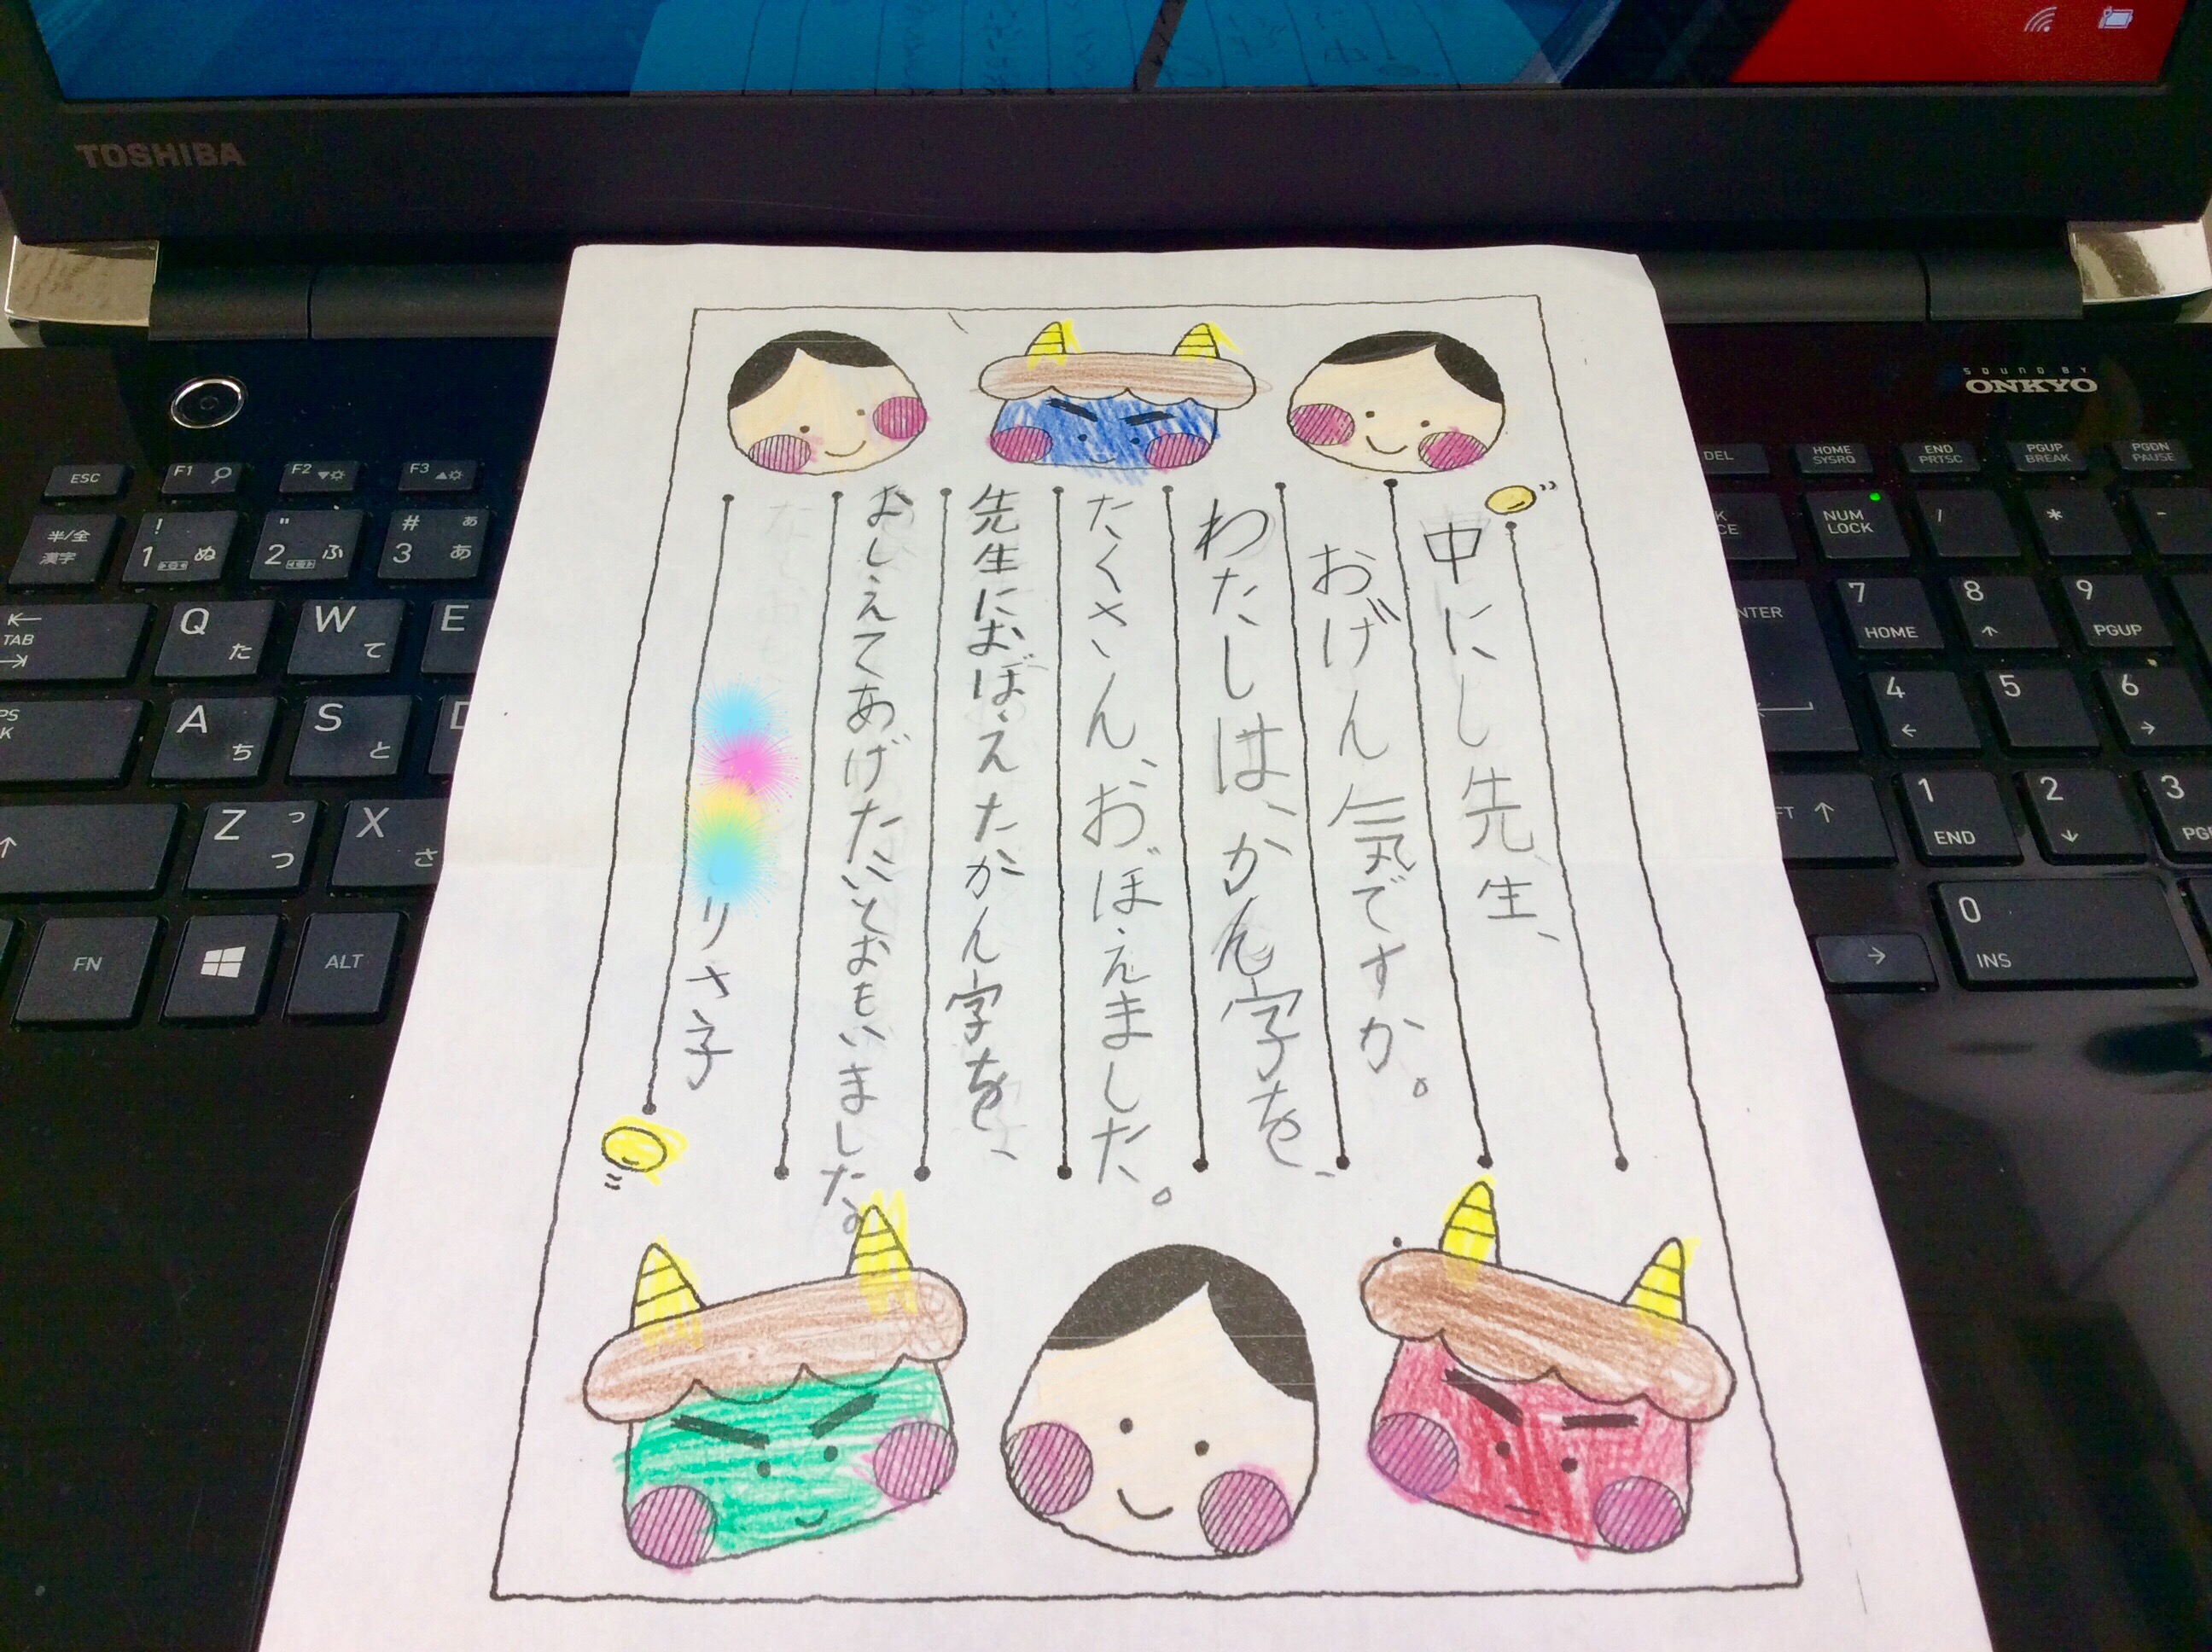 TOSHIBA
SOUND BY
ONKYO
中にし先生、
おげん気ですか。
わたしは、かん字を、
たくさん、おぼえました。
先生におぼえたかん字を、
おしえてあげたいとおもいました。
りさ子
ESC
F1
F2
F3
DEL
HOME
SYSRQ
END
PRTSC
PGUP
BREAK
PGDN
PAUSE
半/全
漢字
! 1 ぬ
" 2 ふ
# 3 あ あ
NUM
LOCK
/
*
-
TAB
Q た
W て
E
7 HOME
8
9 PGUP
A ち
S と
4
5
6
Z っ つ
X さ
1 END
2
3
FN
ALT
0 INS